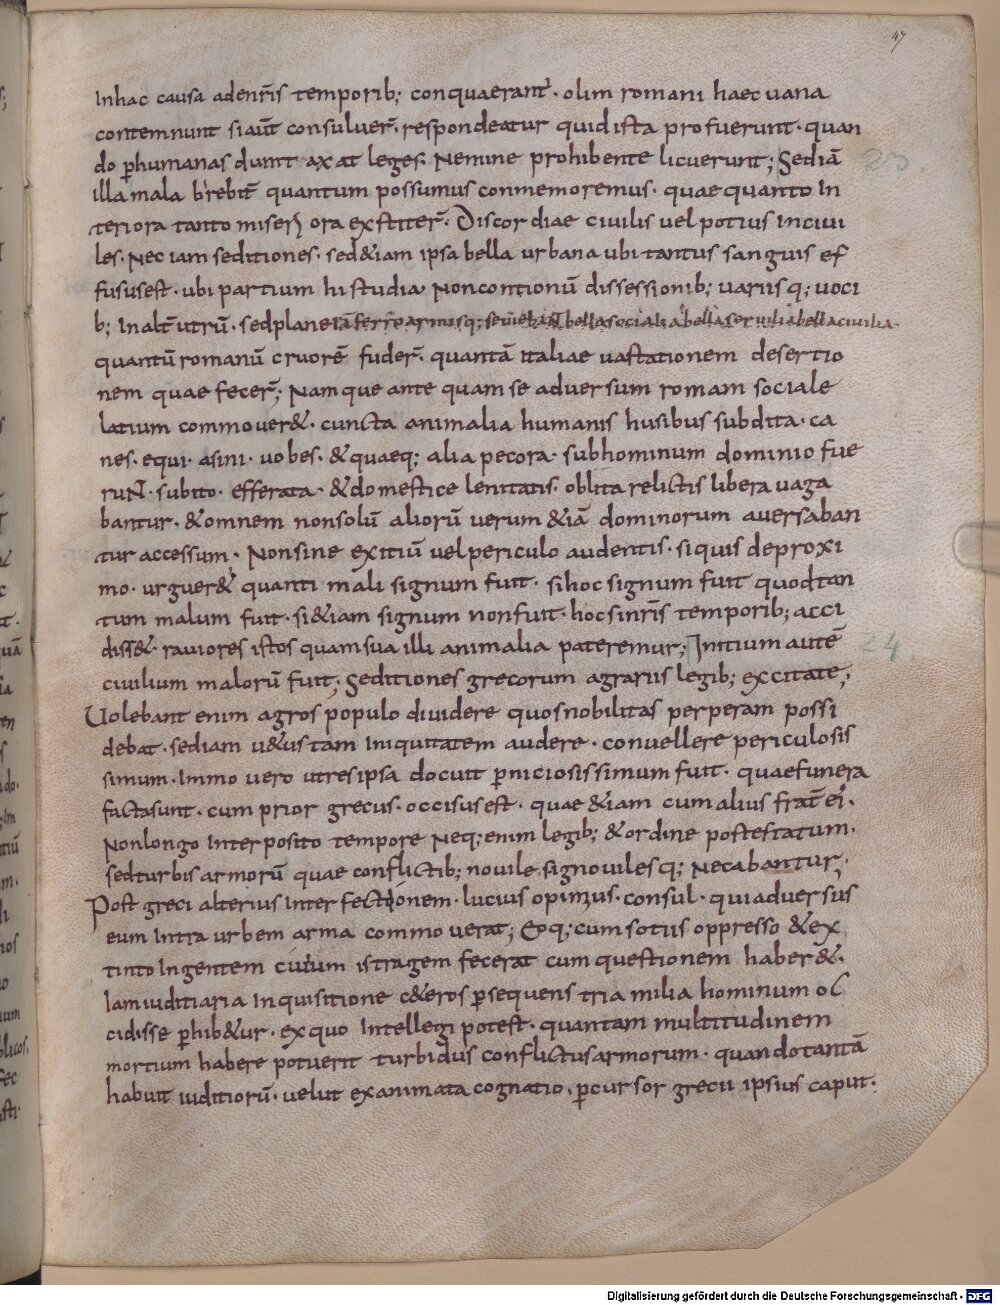 47
Inhac causa adenr̄is temporib; conquaerant̄· olim romani haec uana
contemnunt siaūt consuluer̄· respondeatur quid ista profuerunt· quan
do p̄humanas dumt axat leges· Nemine prohibente licuerunt; Sediā
23.
illa mala brebit̄ quantum possumus conmemoremus· quae quanto In
teriora tanto miser ora exstiter̄· Discordiae ciuilis uel potius inciui
les· Nec iam seditiones· sed&iam ipsa bella urbana ubi tantus sanguis ef
fususest· ubi partium hi studia Noncontionū dissessionib; uariisq; uoci
b; In alt̄utrū· sedplane iā ferro armisq; seuiebant bella socialia bella seruilia bella ciuilia
quantū romanū cruorē fuder̄· quantā italiae uastationem desertio
nem quae fecer̄; Nam que ante quam se aduersum romam sociale
latium commouer&· cuncta animalia humanis husibus subdita· ca
nes· equi· asini· uobes· &quaeq; alia pecora· subhominum dominio fue
ruN· subito· efferata· &domestice lenitatis· oblita relictis libera uaga
bantur· &omnem nonsolū aliorū uerum &iā dominorum auersaban
tur accessum· Nonsine exitiū uel periculo audentis· si quis deproxi
mo· urguer& quanti mali signum fuit· si hoc signum fuit quodtan
tum malum fuit· si&iam signum nonfuit· hocsinr̄is temporib; acci
diss&· rauiores istos quam sua illi animalia pateremur; Initium autē
24.
ciuilium malorū fuit; Seditiones grecorum agrariis legib; excitate;
Uolebant enim agros populo diuidere quos nobilitas perperam possi
debat· sediam u&ustam Iniquitatem audere· conuellere periculosis
simum· Immo uero utresipsa docuit p̄niciosissimum fuit· quae funera
factasunt· cum prior grecus· occisusest· quae &iam cum alius frat̄ ei·
Nonlongo Interposito tempore Neq; enim legib; &ordine postestatum·
sedturbis armorū quae conflictib; nouile signouilesq; Necabantur;
Post greci alterius Interfectionem· lucius opimus· consul· qui aduersus
eum Intra urbem arma commouerat; Eoq; cum sotiis oppresso &ex
tinto Ingentem ciuium istragem fecerat cum questionem haber&·
Iam iuditiaria Inquisitione c&eros p̄sequens tria milia hominum oc
cidisse p̄hib&ur· exquo Intellegi potest· quantam multitudinem
mortium habere potuerit turbidus conflictusarmorum· quando tantā
habuit iuditiorū· uelut examinata cognatio· p̄cursor grecii ipsius caput·
Digitalisierung gefördert durch die Deutsche Forschungsgemeinschaft - DFG